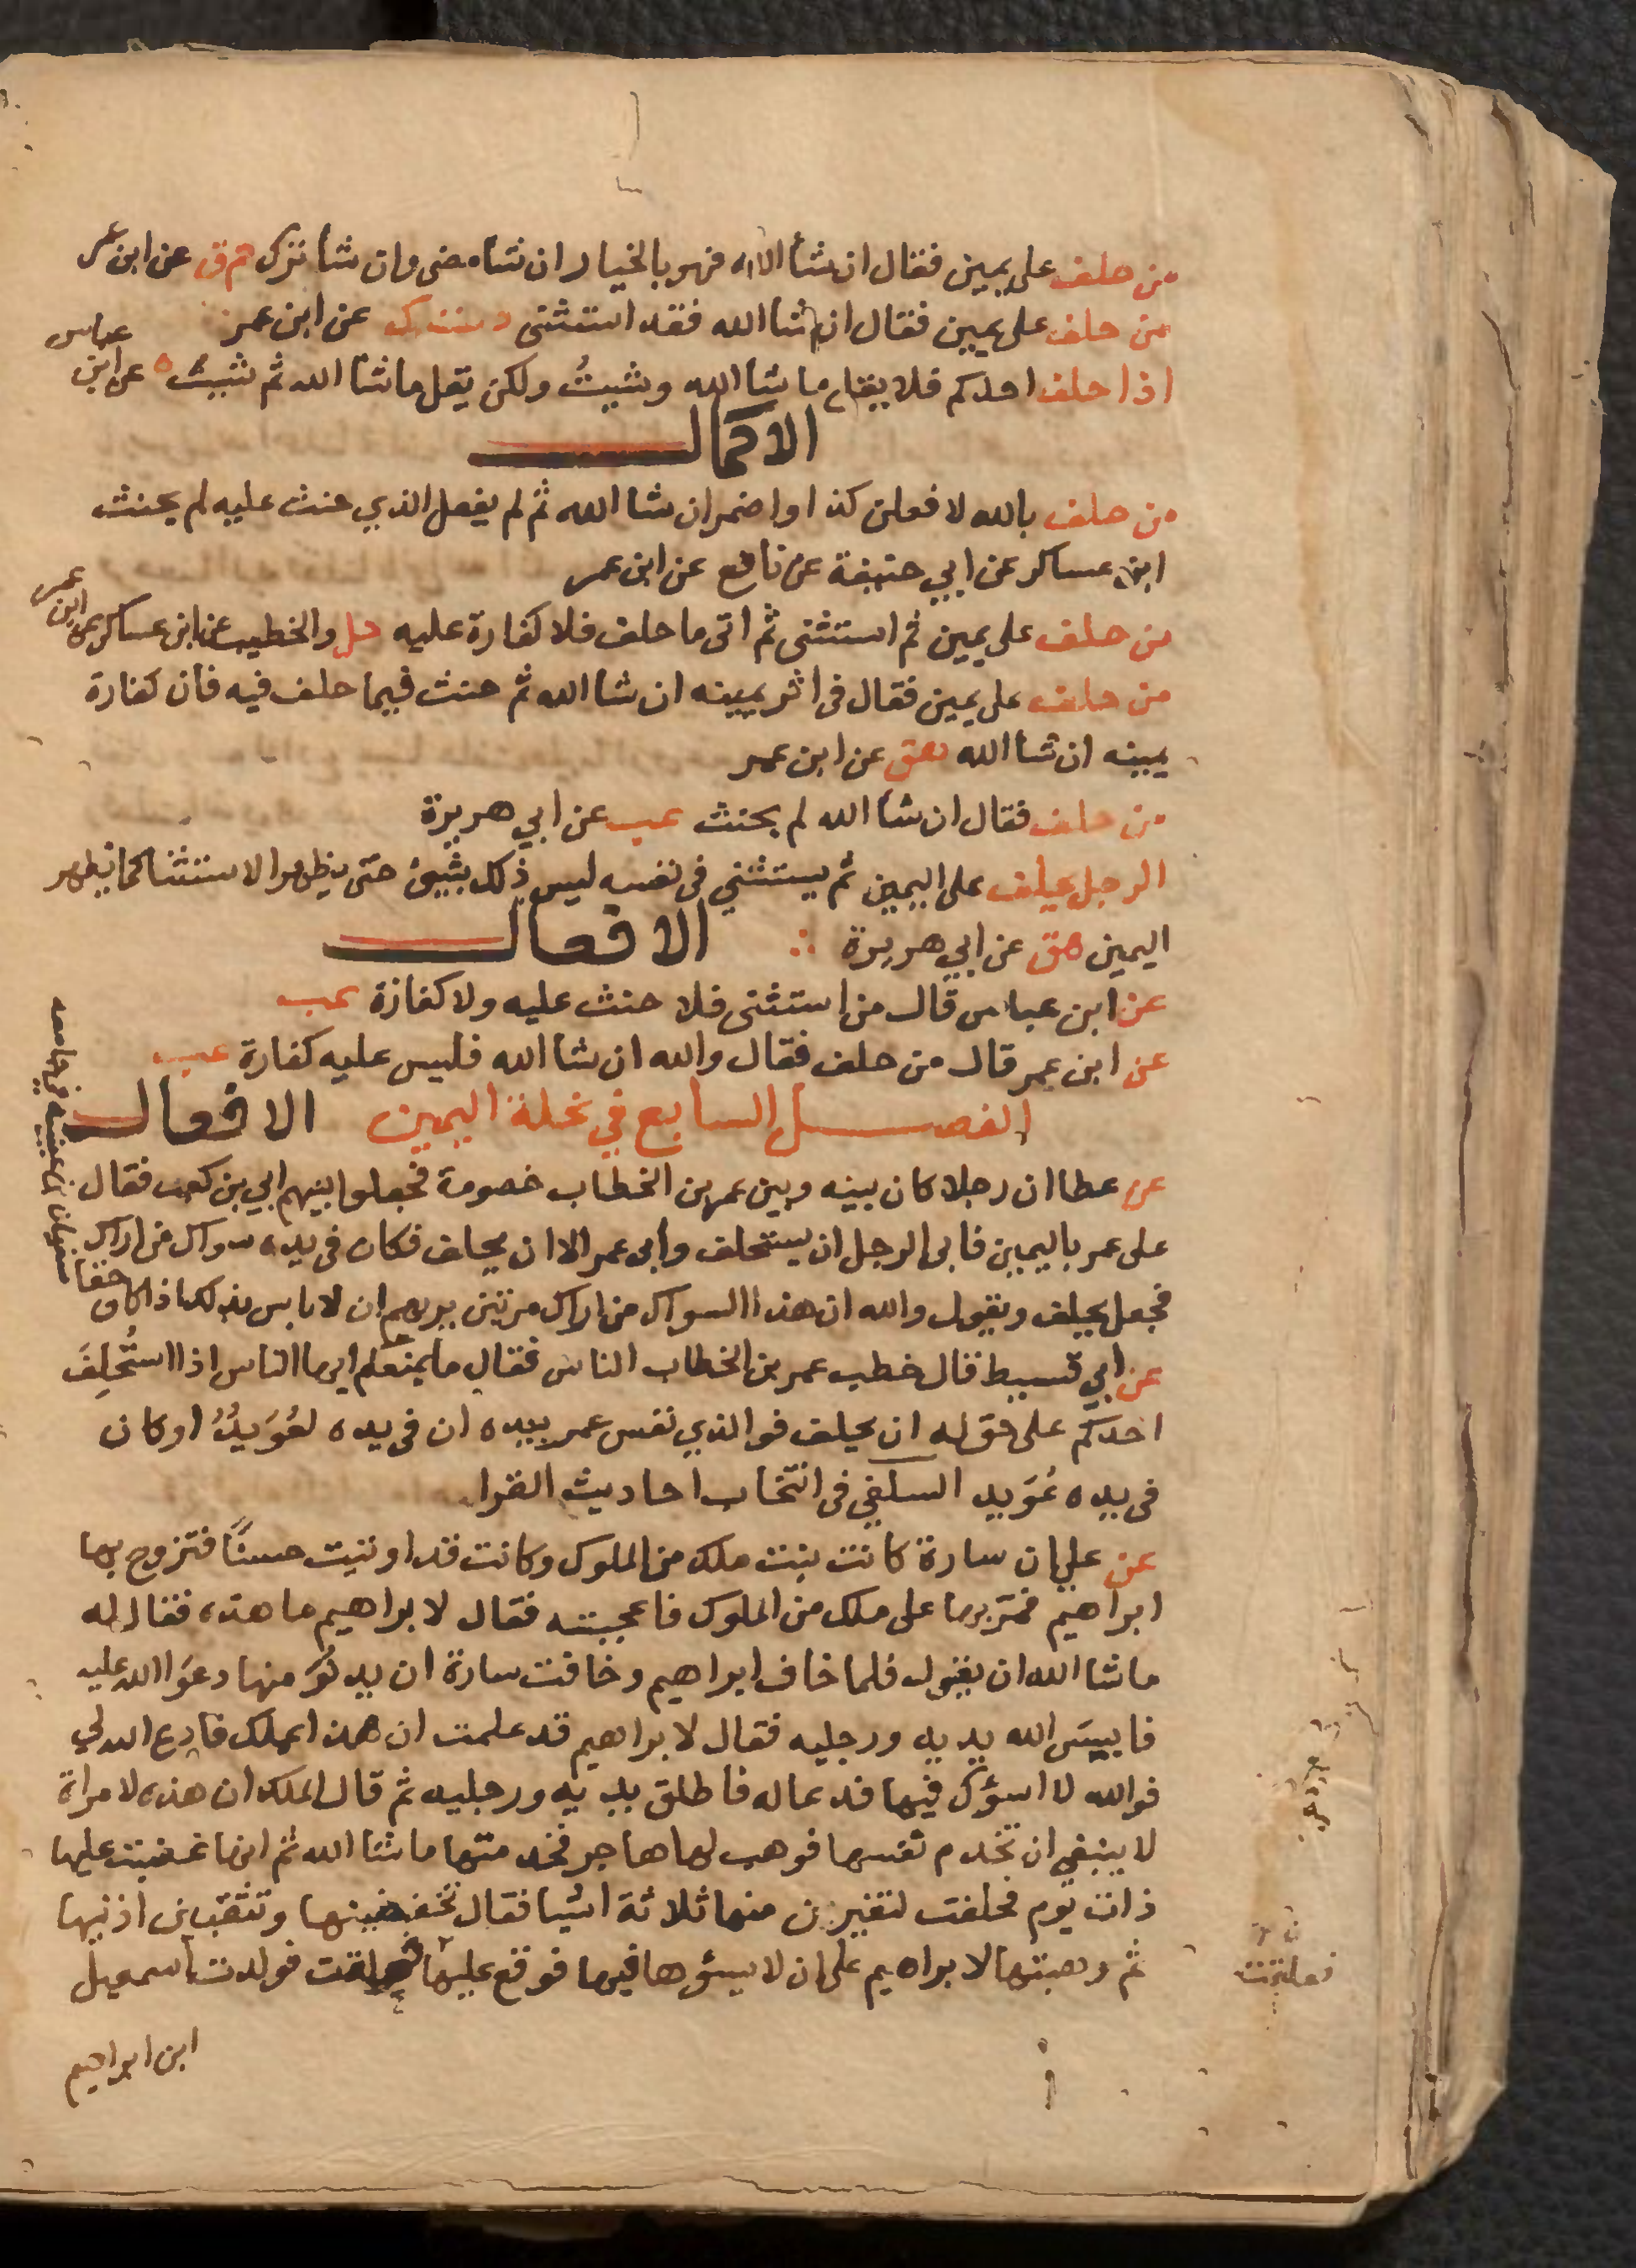 من حلف على يمين فقال ان شأ الله فهو بالخيار ان شأ مضى وان شأ ترك حم ق عن ابن عمر
من حلف على يمين فقال ان شا الله فقد استثنى د ن ت ك عن ابن عمر
اذا حلف احدكم فلا يقل ما شا الله وشيتُ ولكن يقل ما شا الله ثم شيت ه عن ابن عباس
الاكمال
من حلف بالله لا فعلن كذا واضمر ان شا الله ثم لم يفعل الذي حنث عليه لم يحنث
ابن عساكر عن ابي حنيفة عن نافع عن ابن عمر
من حلف على يمين ثم استثنى ثم اتى ما حلف فلا كفارة عليه حل والخطيب وابن عساكر عن ابن عمر
من حلف على يمين فقال في اثر يمينه ان شا الله ثم حنث فيما حلف فيه فان كفارة
يمينه ان شأ الله هق عن ابن عمر
من حلف فقال ان شأ الله لم يحنث عب عن ابي هريرة
الرجل يحلف على اليمين ثم يستثني في نفسه ليس ذلك بشيئ حتى يظهر الاستثنا كما يظهر
اليمين هق عن ابي هريرة ∴ الافعال
عن ابن عباس قال من استثنى فلا حنث عليه ولا كفارة عب
عن ابن عمر قال من حلف فقال والله ان شا الله فليس عليه كفارة عب
الفصل السابع في تحلة اليمين الافعال
عن عطا ان رجلا كان بينه وبين عمر بن الخطاب خصومة فجعلوا بينهم ابي بن كعب فقال
على عمر باليمين فابى الرجل ان يستحلف وابى عمر الا ان يحلف فكان في يده سواك من اراك
فجعل يحلف ويقول والله ان هذا السواك من اراك مرتين يريهم ان لا باس بذلك اذا كان حقا
سفيان بن عيينة في جامعه
عن ابي قسيط قال خطب عمر بن الخطاب الناس فقال ما يمنعكم ايها الناس اذا استُحلِفَ
احدكم على حق له ان يحلف فوالذي نفس عمر بيده ان في يده لعُوَيدٌ او كان
في يده عُوَيد السلفي في انتخاب احاديث القرا
عن علي ان سارة كانت بنت ملك من الملوك وكانت قد اوتيت حسنًا فتزوج بها
ابراهيم فمرّ بها على ملك من الملوك فاعجبته فقال لابراهيم ما هذه فقال له
ما شا الله ان يقول فلما خاف ابراهيم وخافت سارة ان يدنُوَ منها دعَوَا الله عليه
فايبسَ الله يديه ورجليه فقال لابراهيم قد علمت ان هذا عملك فادع الله لي
فوالله لا اسؤك فيها فدعا له فاطلق يديه ورجليه ثم قال الملك ان هذه لامراة
لا ينبغي ان تخدم نفسها فوهب لها هاجر فخدمتها ما شا الله ثم انها غضبت عليها
ذات يوم فحلفت لتغيرن منها ثلاثة اشيا فقال تخفضينها وتثقبين اذنيها
ثم وهبتها لابراهيم على ان لا يسؤها فيها فوقع عليها فعلقت فولدت اسمعيل
فعلقت
ابن ابراهيم